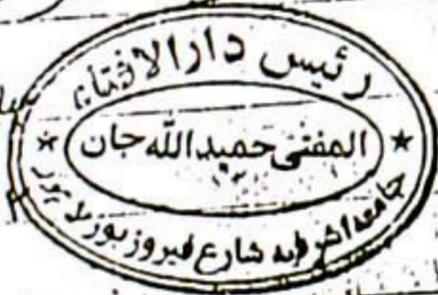 رئيس دارالافتاء
المفتی حمیداللہ جان
جامعہ اشرفیہ شارع فیروزپور لاہور